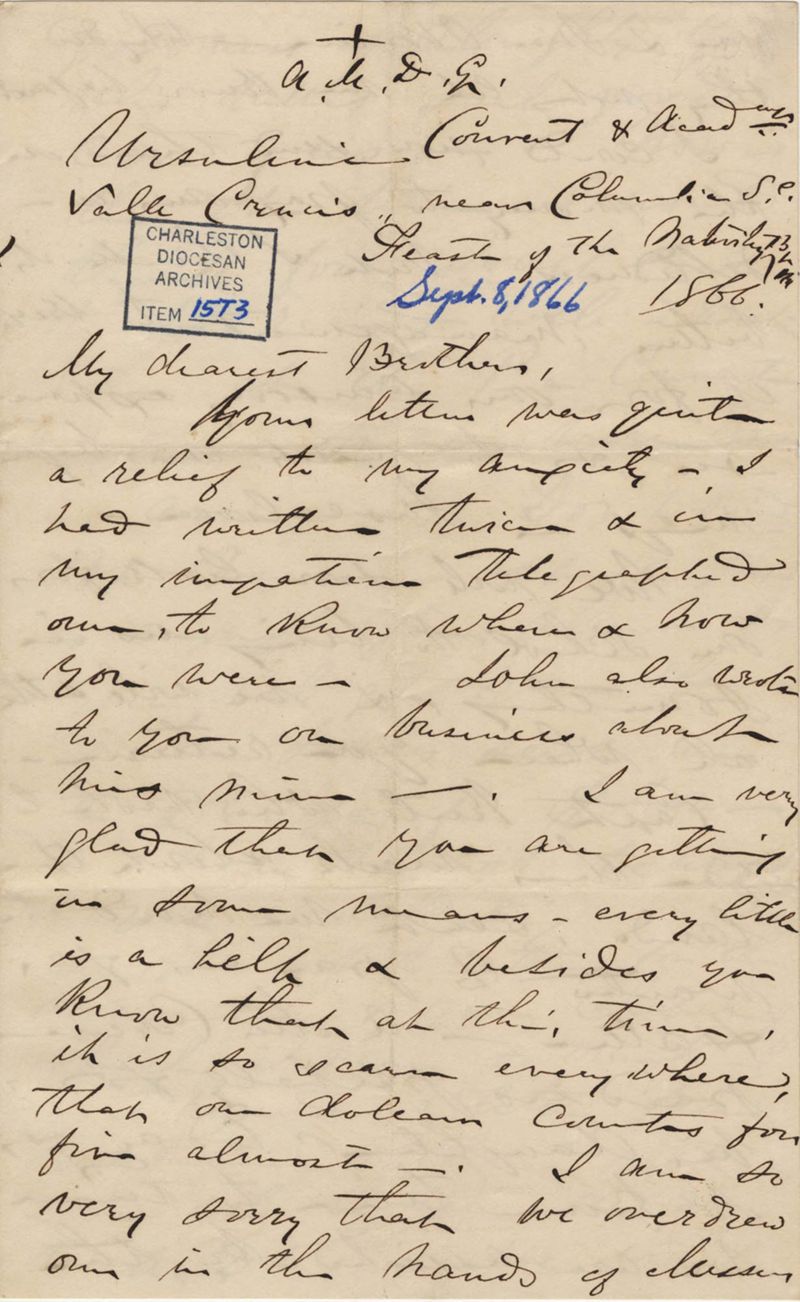 A.M.D.G.
Ursuline Convent & Academy
Valle Crucis, near Columbia S.C.
Feast of the Nativity B.
1866.
Sept. 8, 1866
CHARLESTON
DIOCESAN
ARCHIVES
ITEM 15T3
My dearest Brother,
Your letter was quite
a relief to my anxiety - I
had written twice & in
my impatience telegraphed
one, to know where & how
you were - John also wrote
to you on business about
his mine -. I am very
glad that you are getting
in some means - every little
is a help & besides you
know that at this time,
it is so scarce everywhere,
that one dolear counts for
five almost -. I am so
very sorry that we overdrew
one in the hands of Messrs